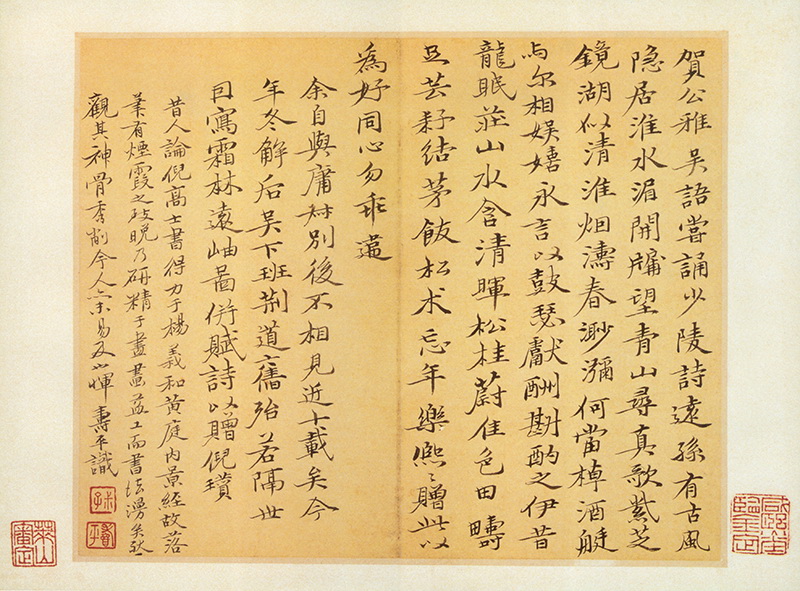 賀公雅吳語嘗誦少陵詩遠孫有古風
隐居淮水湄開牖望青山尋真歌紫芝
鏡湖似清淮烟濤春渺瀰何當棹酒艇
与尔相娱嬉永言以鼓瑟獻酬斟酌之伊昔
龍眠莊山水含清暉松桂蔚佳色田疇
且芸耔结茅飯松术忘年樂熙〻贈此以
為好同心勿乖違
余自與庸別後不相見近十載矣今
年冬解后吴下班荆道舊殆若隔世
因寫霜林遠岫啚併賦詩以贈倪瓚
昔人論倪高士書得力于楊義和黄庭内景經故落
筆有煙霞之致晚乃研精于畫畫益工而書法漫矣然
觀其神骨秀削今人未易及也惲壽平識
叔子
壽平
萊山審定